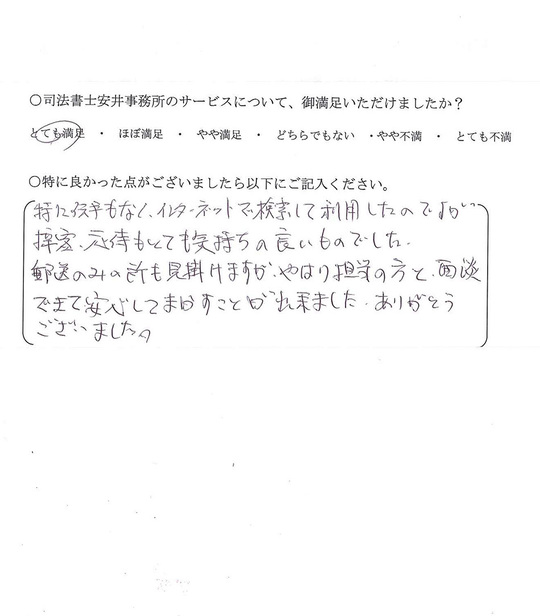 ○司法書士安井事務所のサービスについて、御満足いただけましたか？
とても満足 ・ ほぼ満足 ・ やや満足 ・ どちらでもない ・やや不満 ・ とても不満
○特に良かった点がございましたら以下にご記入ください。
特に伝手もなく、インターネットで検索して利用したのですが
接客、応待もとても気持ちの良いものでした。
郵送のみの所も見掛けますが、やはり担当の方と、面談
できて安心してまかすことが出来ました。ありがとう
ございました。